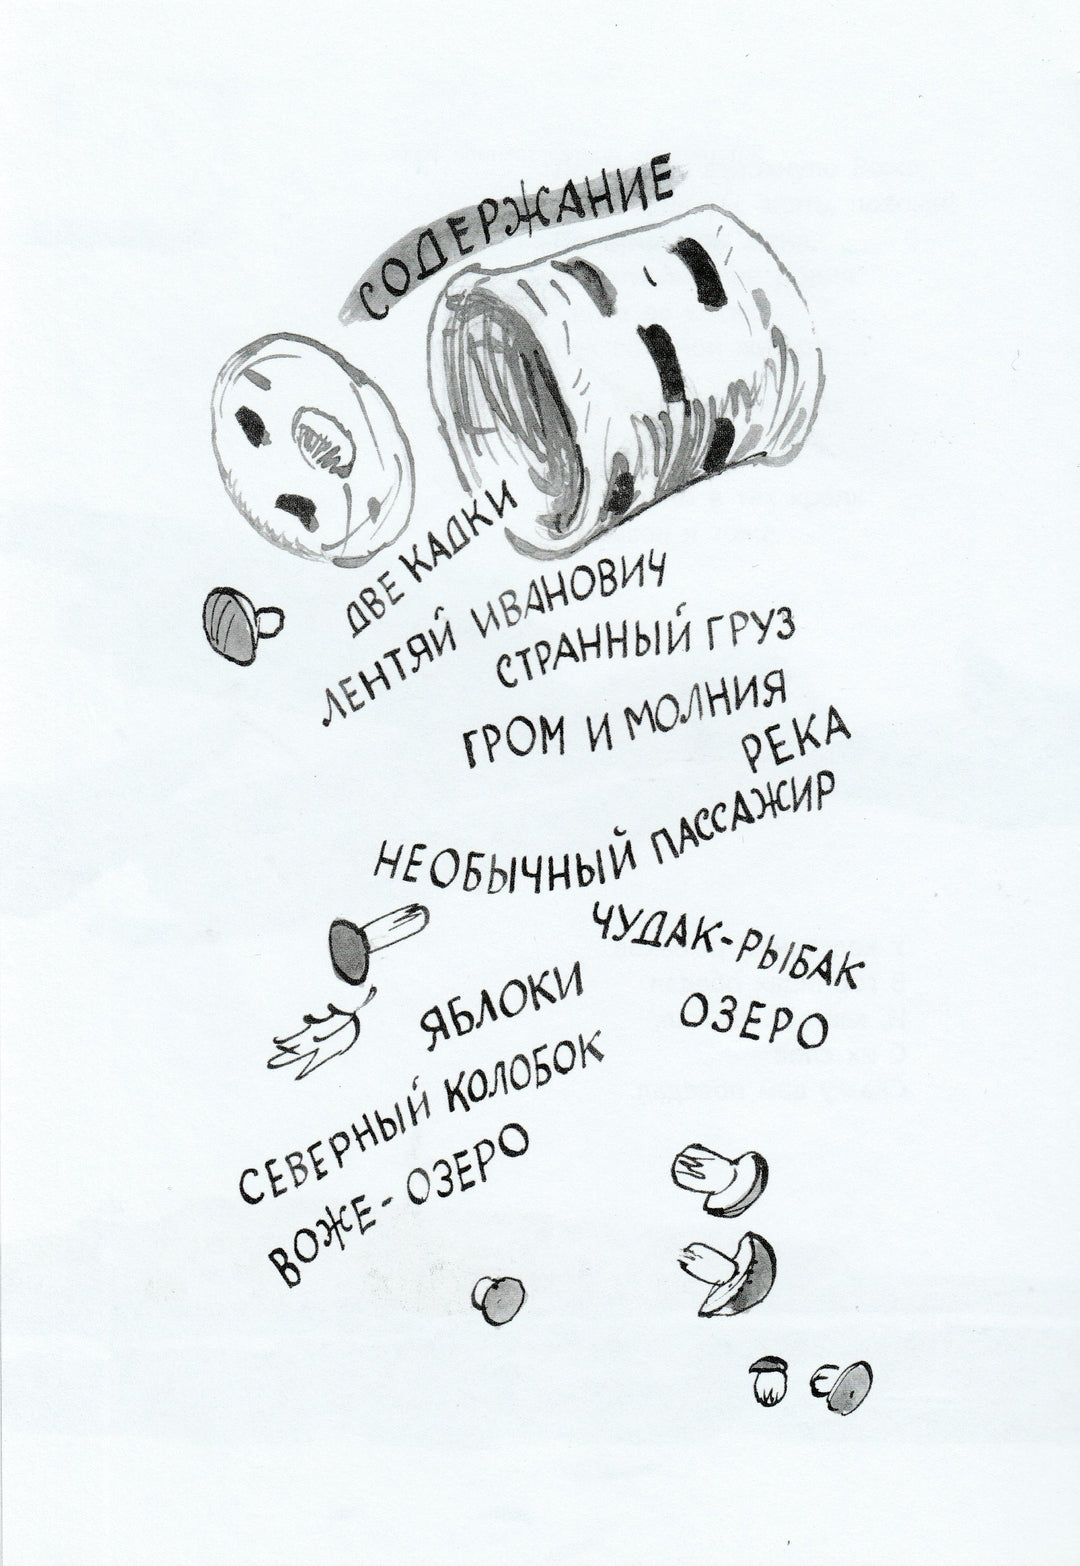 СОДЕРЖАНИЕ
ДВЕ КАДКИ
ЛЕНТЯЙ ИВАНОВИЧ
СТРАННЫЙ ГРУЗ
ГРОМ И МОЛНИЯ
РЕКА
НЕОБЫЧНЫЙ ПАССАЖИР
ЧУДАК-РЫБАК
ОЗЕРО
ЯБЛОКИ
СЕВЕРНЫЙ КОЛОБОК
ВОЖЕ-ОЗЕРО